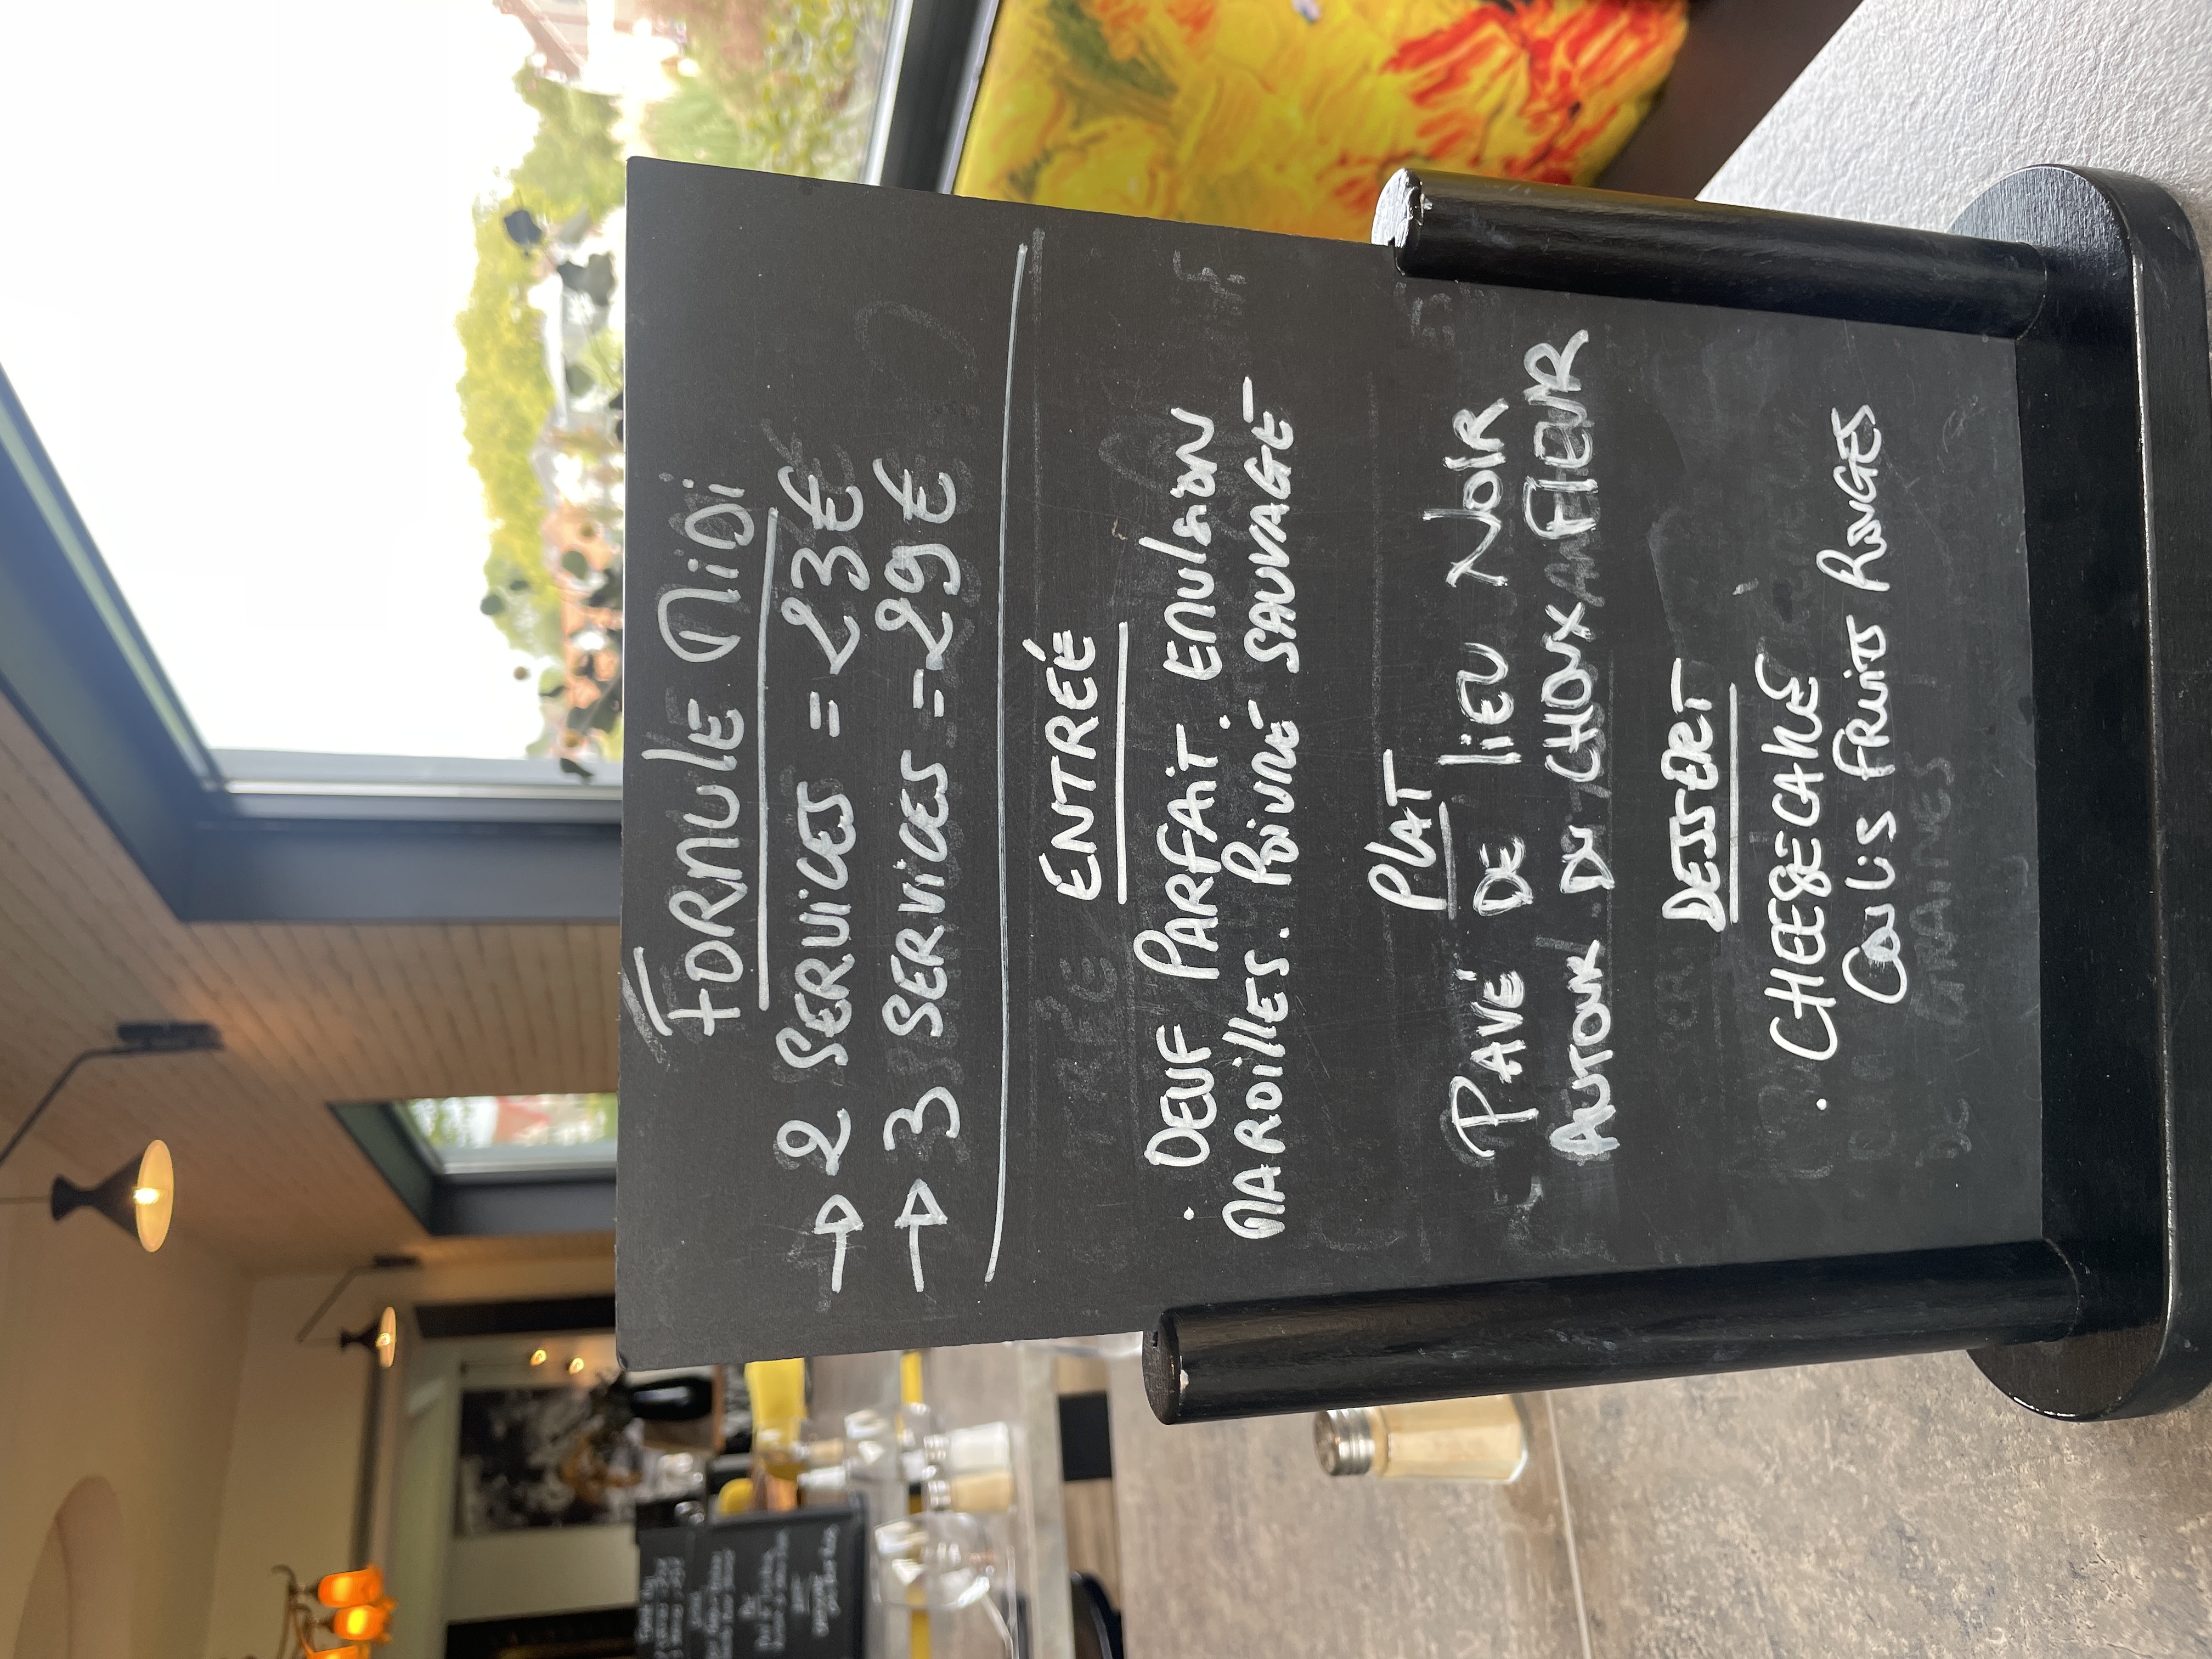 FORMULE MIDI
→ 2 SERVICES = 23€
→ 3 SERVICES = 29€
ENTREÉ
. OEUF PARFAIT. EMULSION
MAROILLES. POIVRE SAUVAGE
PLAT
PAVÉ DE LIEU NOIR
AUTOUR DU CHOUX FLEUR
DESSERT
. CHEESECAKE
COULIS FRUITS ROUGES